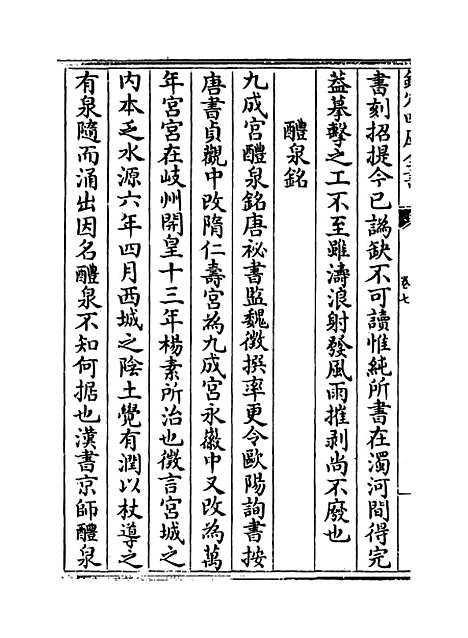 欽定四庫全書
卷七
書刻招提今已譌缺不可讀惟純所書在濁河間得完
葢摹擊之工不至雖濤浪射發風雨摧剥尚不廢也
醴泉銘
九成宫醴泉銘唐祕書監魏徴撰率更令歐陽詢書按
唐書貞觀中改隋仁壽宮為九成宮永徽中又改為萬
年宮宮在岐州開皇十三年楊素所治也徴言宮城之
内本乏水源六年四月西城之陰土覺有潤以杖導之
有泉隨而涌出因名醴泉不知何据也漢書京師醴泉